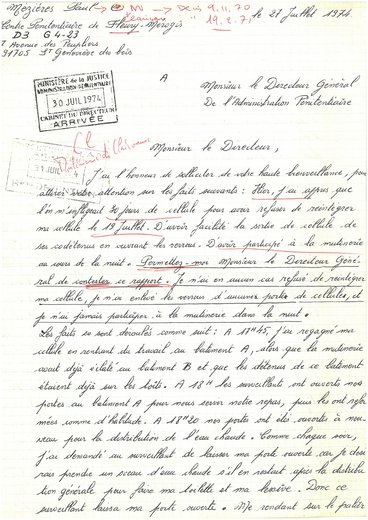 Mezières Paul
le 27 Juillet 1974
Centre Penitentiaire de Fleury-Merogis
19.2.71
D3 G4-23
7 Avenue des Peupliers
91705 Ste Geneviève des bois
A Monsieur le Directeur Général
De l'Administration Penitentiaire
MINISTÈRE de la JUSTICE
ADMINISTRATION PÉNITENTIAIRE
30 JUIL 1974
CABINET DU DIRECTEUR
ARRIVÉE
Monsieur le Directeur,
J'ai l'honneur de solliciter de votre haute bienveillance, pour
attirer votre attention sur les faits suivants : Hier, j'ai appris que
l'on m'infligeait 30 jours de cellule pour avoir refuser de reintegrer
ma cellule le 19 Juillet. D'avoir facilité la sortie de cellule de
ses codetenus en ouvrant les verrous. D'avoir participé à la mutinerie
au cours de la nuit. Permettez-moi Monsieur le Directeur Géné-
ral de contester ce rapport. Je n'ai en aucun cas refusé de reintégrer
ma cellule, je n'ai enlevé les verrous d'aucunes portes de cellules, et
je n'ai jamais participer à la mutinerie dans la nuit.
Les faits se sont déroulés comme suit : A 17H45, j'ai regagné ma
cellule en rentrant du travail au batiment A, alors que la mutinerie
avait déjà éclaté au batiment B et que les détenus de ce batiment
étaient déjà sur les toits. A 18H les surveillants ont ouverts nos
portes au batiment A pour nous servir notre repas, puis les ont refer-
mées comme d'habitude. A 18H20 nos portes ont étés ouverte à nou-
veau pour la distribution de l'eau chaude. Comme chaque soir,
j'ai demandé au surveillant de laisser ma porte ouverte car je desi-
rais prendre un sceau d'eau chaude s'il en restait après la distribu-
tion générale pour faire ma toilette et ma lessive. Donc ce
surveillant laissa ma porte ouverte. Me rendant sur le palier